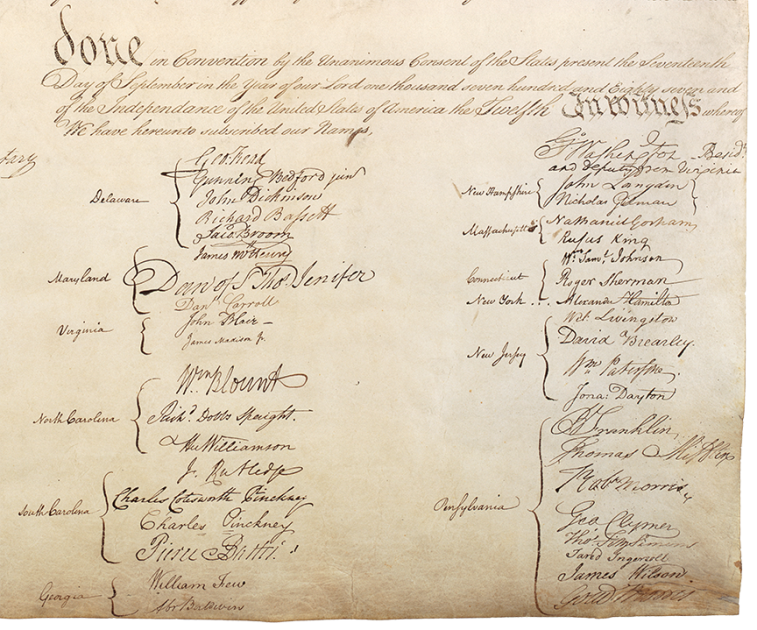 done in Convention by the Unanimous Consent of the States present the Seventeenth
Day of September in the Year of our Lord one thousand seven hundred and Eighty seven and
of the Independance of the United States of America the Twelfth In witness whereof
We have hereunto subscribed our Names,
tary
Delaware
Geo: Read
Gunning Bedford jun
John Dickinson
Richard Bassett
Jaco: Broom
Maryland
James McHenry
Dan of St Thos. Jenifer
Danl Carroll
Virginia
John Blair —
James Madison Jr.
North Carolina
Wm Blount
Richd. Dobbs Spaight.
Hu Williamson
South Carolina
J. Rutledge
Charles Cotesworth Pinckney
Charles Pinckney
Pierce Butler.
Georgia
William Few
Abr Baldwin
Go. Washington Presidt.
and deputy from Virginia
New Hampshire
John Langdon
Nicholas Gilman
Massachusetts
Nathaniel Gorham
Rufus King
Connecticut
Wm. Saml. Johnson
Roger Sherman
New York . . .
Alexander Hamilton
New Jersey
Wil: Livingston
David Brearley.
Wm Paterson.
Jona: Dayton
Pensylvania
B Franklin,
Thomas Mifflin
Robt Morris,
Geo Clymer
Thos. FitzSimons
Jared Ingersoll
James Wilson
Gouv Morris